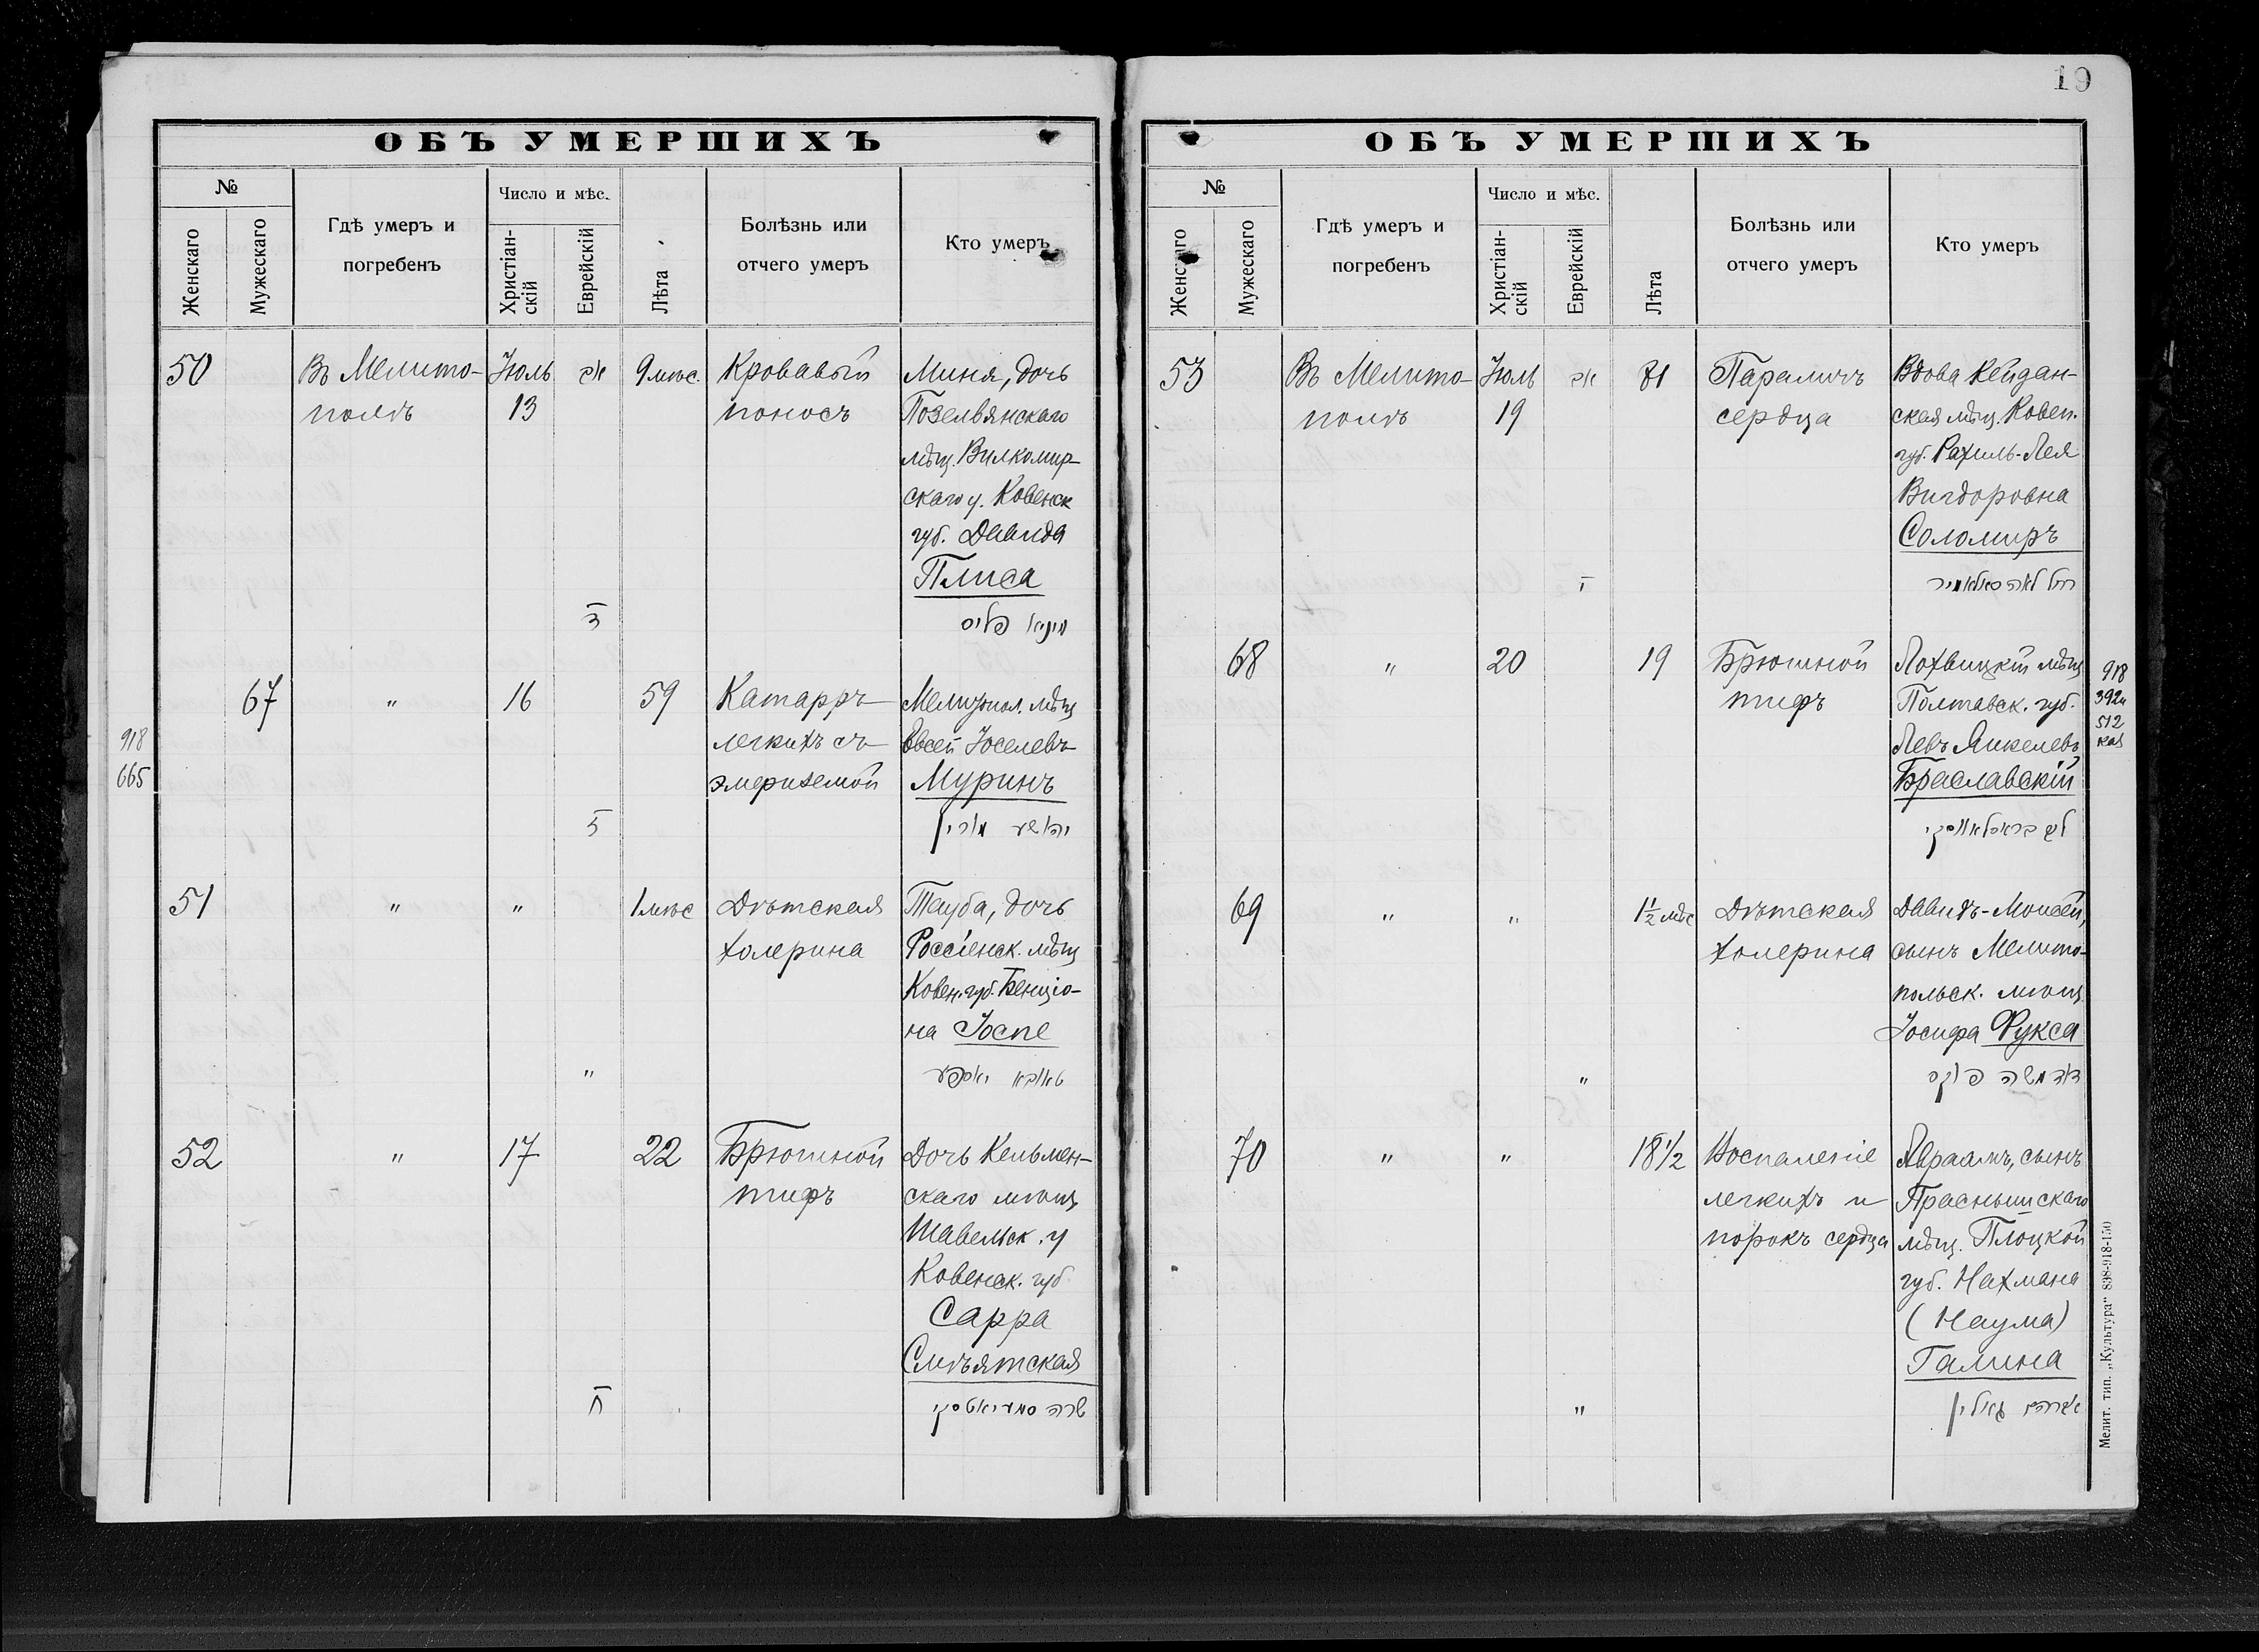 ОБЪ УМЕРШИХЪ
№
Женскаго
Мужескаго
Гдѣ умеръ и
погребенъ
Число и мѣс.
Христіан-
скій
Еврейскій
Лѣта
Болѣзнь или
отчего умеръ
Кто умеръ
50
Въ Мелито-
полѣ
Іюль
13
אב
ג
9 мѣс.
Кровавый
поносъ
Миня, дочь
Позельвянскаго
мѣщ. Вилкомир-
скаго у. Ковенск
губ. Давида
Плиса
מיניא פליס
918
665
67
"
16
59
Катарръ
легкихъ съ
эмфиземой
Мелитопол. мѣщ
Евсей Іоселевъ
Муринъ
יהושע מורין
51
"
"
"
1 мѣс
Дѣтская
холерина
Тауба, дочь
Россіенск. мѣщ
Ковен. губ. Бенціо-
на Іоспе
טאובא יאספע
52
"
17
ח
22
Брюшной
тифъ
Дочь Кельмен-
скаго мѣщ
Шавельск. у
Ковенск. губ
Сарра
Смѣятская
שרה סמעיאטסקי
19
ОБЪ УМЕРШИХЪ
№
Женскаго
Мужескаго
Гдѣ умеръ и
погребенъ
Число и мѣс.
Христіан-
скій
Еврейскій
Лѣта
Болѣзнь или
отчего умеръ
Кто умеръ
53
Въ Мелито-
полѣ
Іюль
19
אב
י
81
Параличъ
сердца
Вдова Кейдан-
ская мѣщ. Ковен.
губ. Рахиль-Лея
Вигдоровна
Соломиръ
רחל לאה סאלאמיר
68
"
20
19
Брюшной
тифъ
Лохвицкій мѣщ
Полтавск. губ.
Левъ Янкелевъ
Браславскій
לב בראסלאווסקי
918
392и
512
69
"
"
"
1½ мѣс
Дѣтская
холерина
Давидъ-Моисей,
сынъ Мелито-
польск. мѣщ
Іосифа Фукса
דוד משה פוקס
70
"
"
"
18½
Воспаленіе
легкихъ и
порокъ сердца
Авраамъ, сынъ
Праснышскаго
мѣщ. Плоцкой
губ. Нахмана
(Наума)
Галина
אברהם גאלין
Мелит. тип. „Культура“ 838-918-150